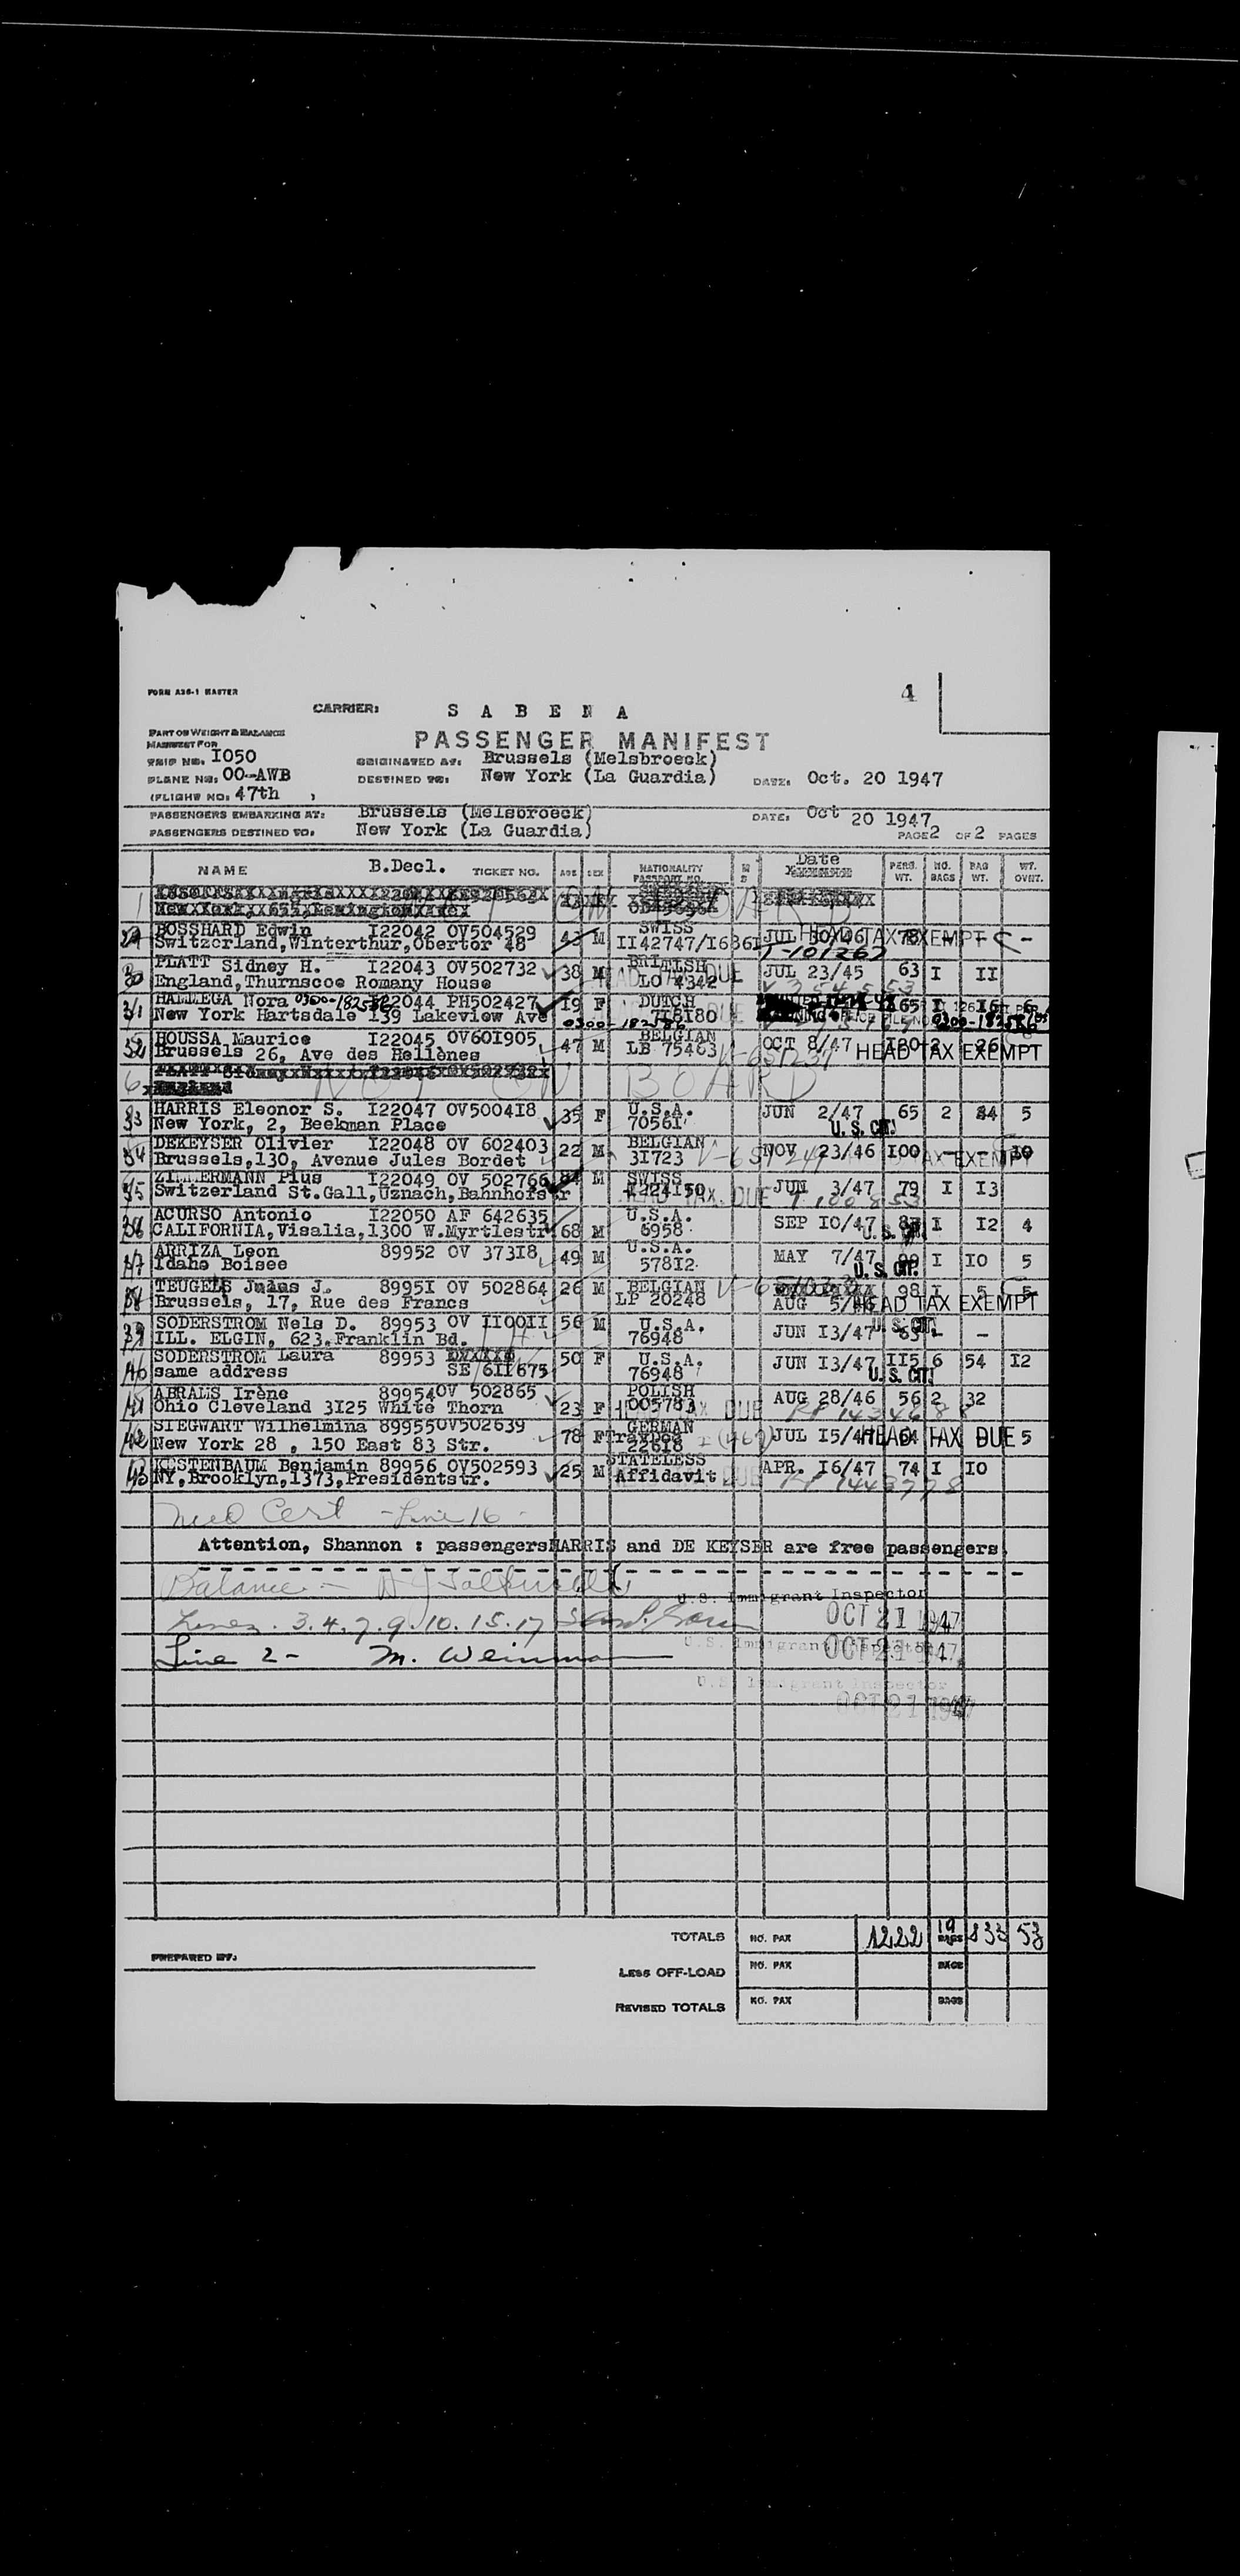 FORM A36-1 MASTER
4
CARRIER: S A B E N A
PART OF WEIGHT & BALANCE
MANIFEST FOR
PASSENGER MANIFEST
TRIP NO. I050
ORIGINATED AT: Brussels (Melsbroeck)
PLANE NO: OO-AWB
DESTINED TO: New York (La Guardia) DATE: Oct. 20 1947
(FLIGHT NO: 47th )
PASSENGERS EMBARKING AT: Brussels (Melsbroeck) DATE: Oct 20 1947
PASSENGERS DESTINED TO: New York (La Guardia) PAGE 2 OF 2 PAGES
NAME B.Decl. TICKET NO. AGE SEX NATIONALITY PASSPORT NO. M S Date PERS. WT. NO. BAGS BAG WT. WT. OVHT.
1
BOSSHARD Edwin I22042 OV504529 43 M SWISS JUL 30/46 78 - - -
Switzerland,Winterthur,Obertor 48 II42747/I6861 HEAD TAX EXEMPT
T-101262
30 PLATT Sidney H. I22043 OV502732 38 M BRITISH JUL 23/45 63 I II
England,Thurnscoe Romany House LO 4342 HEAD TAX DUE
31 HALLEGA Nora 0300-182586 I22044 PH502427 I9 F DUTCH 65 I I6 6
New York Hartsdale I39 Lakeview Ave 7I8I80
0300-182586
32 HOUSSA Maurice I22045 OV60I905 47 M BELGIAN OCT 8/47 I20 2 26
Brussels 26, Ave des Hellènes LB 75463 HEAD TAX EXEMPT
6 NOT ON BOARD
33 HARRIS Eleonor S. I22047 OV5004I8 35 F U.S.A. JUN 2/47 65 2 34 5
New York, 2, Beekman Place 7056I U.S. CIT.
34 DEKEYSER Olivier I22048 OV 602403 22 M BELGIAN NOV 23/46 I00 - - I0
Brussels,I30, Avenue Jules Bordet 3I723 HEAD TAX EXEMPT
35 ZIMMERMANN Pius I22049 OV 502766 M SWISS JUN 3/47 79 I I3
Switzerland St.Gall,Uznach,Bahnhofstr I224I50 HEAD TAX DUE T 100853
36 ACURSO Antonio I22050 AF 642635 68 M U.S.A. SEP I0/47 I I2 4
CALIFORNIA,Visalia,I300 W.Myrtlestr 6958 U.S. CIT.
37 ARRIZA Leon 89952 OV 373I8 49 M U.S.A. MAY 7/47 I I0 5
Idaho Boisee 578I2 U.S. CIT.
TEUGELS Jules J. 8995I OV 502864 26 M BELGIAN 98 I 5 5
Brussels, I7, Rue des Francs LP 20248 AUG 5/46 HEAD TAX EXEMPT
39 SODERSTROM Nels D. 89953 OV II00II 56 M U.S.A. JUN I3/47 - -
ILL. ELGIN, 623.Franklin Bd. 76948 U.S. CIT.
40 SODERSTROM Laura 89953 50 F U.S.A. JUN I3/47 II5 6 54 I2
same address SE 6II675 76948 U.S. CIT.
41 ABRALS Irène 89954OV 502865 23 F POLISH AUG 28/46 56 2 32
Ohio Cleveland 3I25 White Thorn 005783 HEAD TAX DUE
42 SIEGWART Wilhelmina 89955OV502639 78 F GERMAN JUL I5/47 64 5
New York 28 , I50 East 83 Str. Travdoc 226I8 HEAD TAX DUE
43 KESTENBAUM Benjamin 89956 OV502593 25 M STATELESS APR. I6/47 74 I I0
NY, Brooklyn,I373,Presidentstr. Affidavit
Med Cert - Line 16 -
Attention, Shannon : passengers HARRIS and DE KEYSER are free passengers.
Balance -
U.S. Immigrant Inspector
Lines. 3. 4. 7. 9. 10. 15. 17
OCT 21 1947
U.S. Immigrant Inspector
Line 2 - M. Weinman
OCT 21 1947
U.S. Immigrant Inspector
OCT 21 1947
TOTALS NO. PAX 1222 19 BAGS 333 53
PREPARED BY:
LESS OFF-LOAD NO. PAX BAGS
REVISED TOTALS NO. PAX BAGS